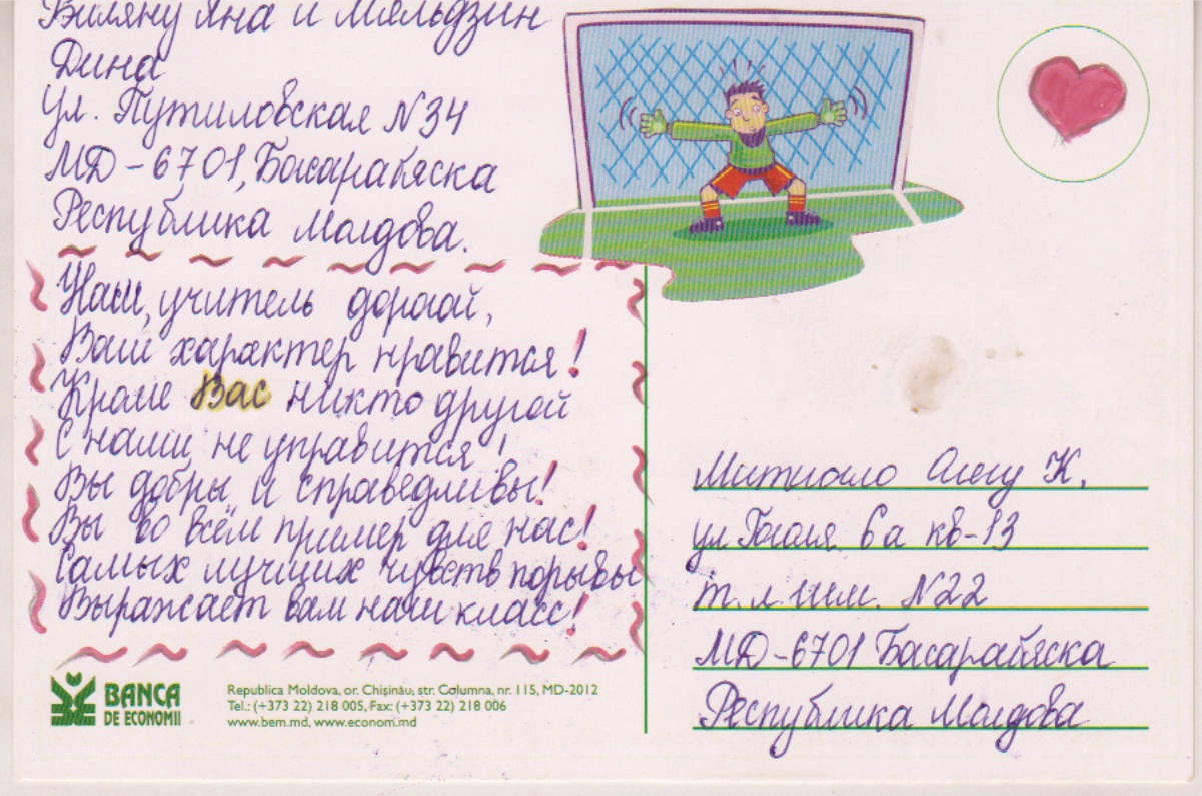 Виляну Яна и Мельдзин
Дина
ул. Путиловская N34
МД-6701, Басарабяска
Республика Молдова.
Наш, учитель дорогой,
Ваш характер нравится!
Кроме Вас никто другой
С нами не управится!
Вы добры и справедливы!
Вы во всём пример для нас!
Самых лучших чувств порывы
Выражает вам наш класс!
Олегу К.
ул Гоголя 6а кв-13
N22
МД-6701 Басарабяска
Республика Молдова
BANCA
DE ECONOMII
Republica Moldova, or. Chişinău, str. Columna, nr. 115, MD-2012
Tel.: (+373 22) 218 005, Fax: (+373 22) 218 006
www.bem.md, www.econom.md